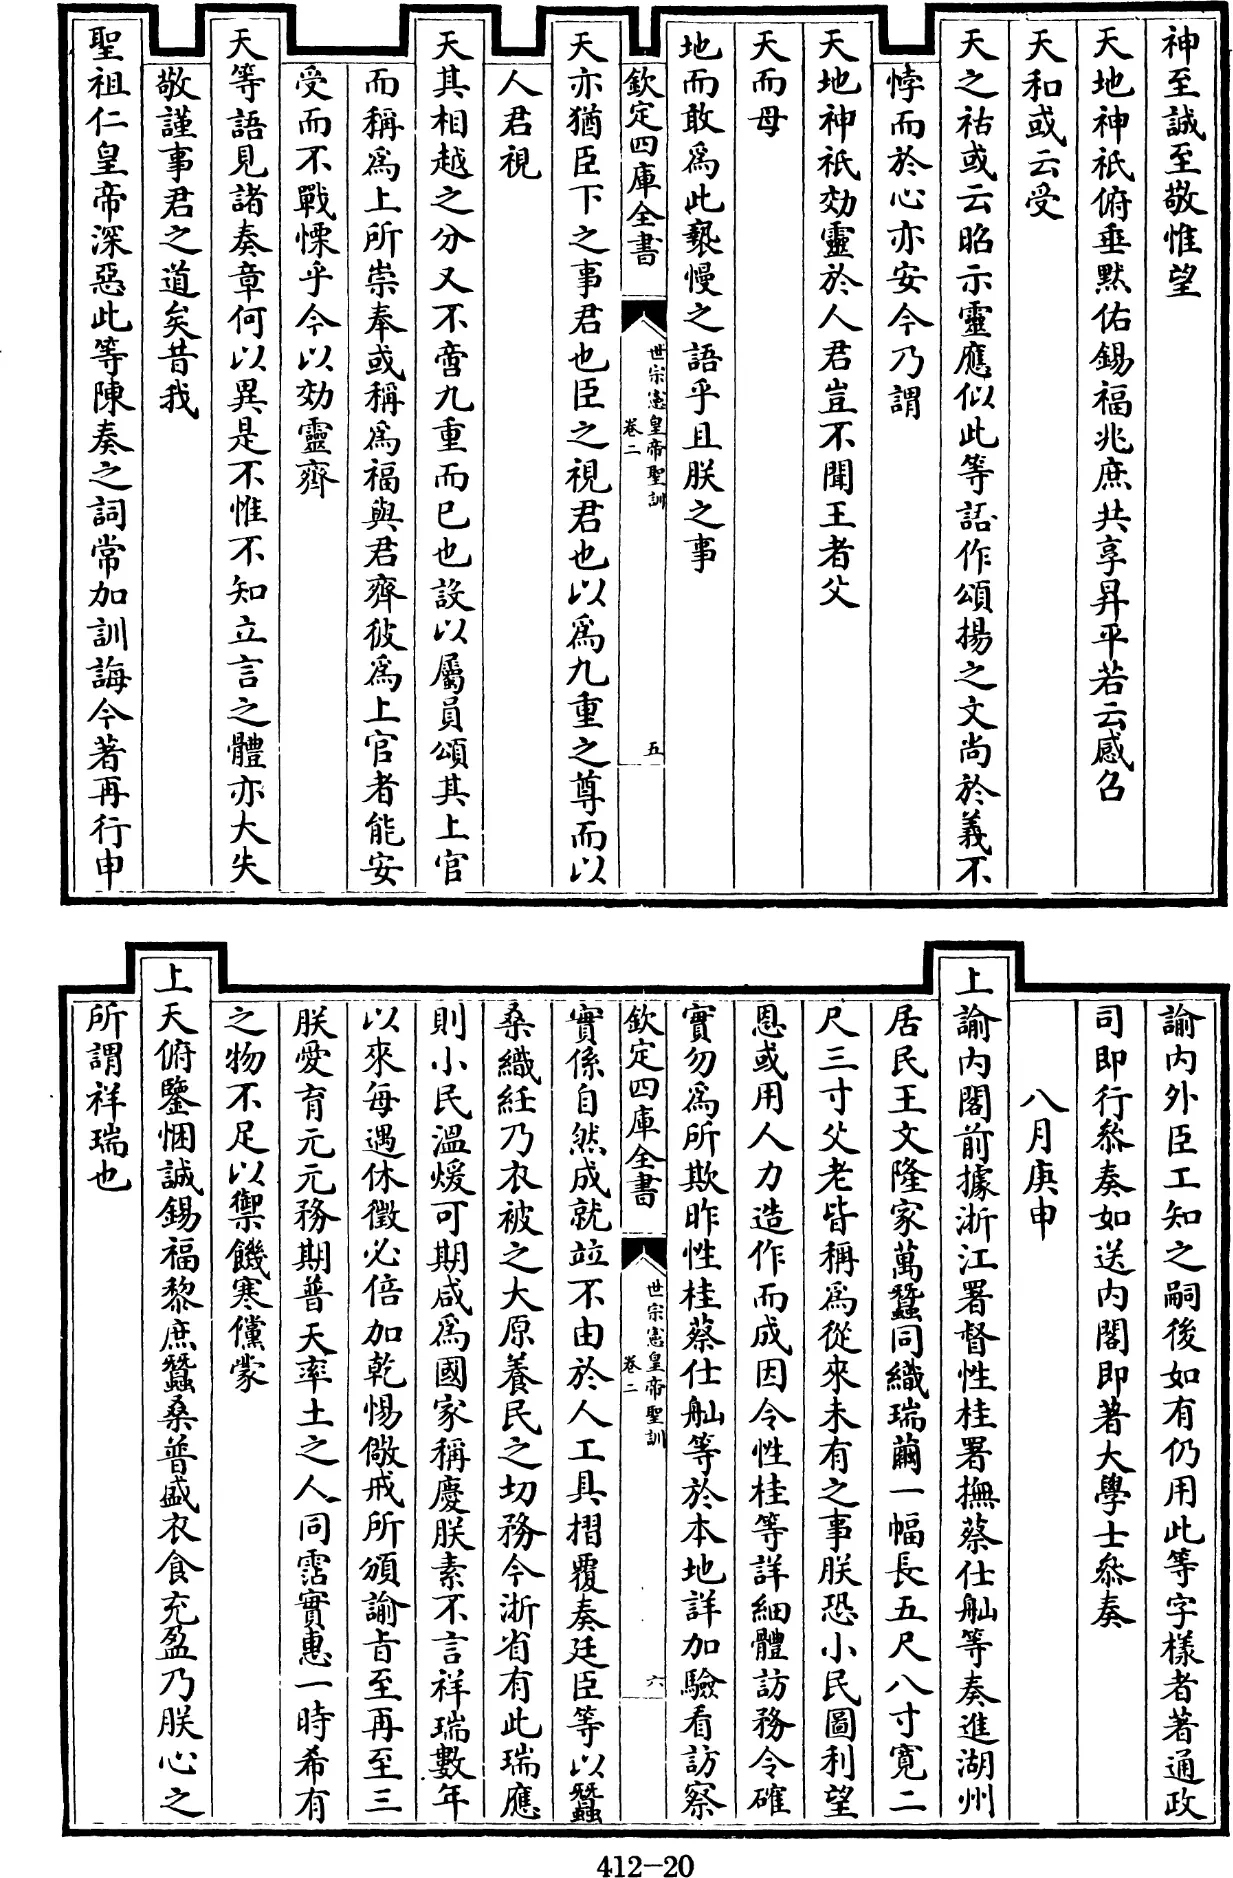 神至誠至敬惟望
天地神祇俯垂黙佑錫福兆庶共享昇平若云感召
天和或云受
天之祐或云昭示靈應似此等語作頌揚之文尚於義不
悖而於心亦安今乃謂
天地神祇効靈於人君豈不聞王者父
天而母
地而敢爲此褻慢之語乎且朕之事
欽定四庫全書
世宗憲皇帝聖訓
卷二
五
天亦猶臣下之事君也臣之視君也以爲九重之尊而以
人君視
天其相越之分又不啻九重而已也設以屬員頌其上官
而稱爲上所崇奉或稱爲福與君齊彼爲上官者能安
受而不戰慄乎今以効靈齊
天等語見諸奏章何以異是不惟不知立言之體亦大失
敬謹事君之道矣昔我
聖祖仁皇帝深惡此等陳奏之詞常加訓誨今著再行申
諭内外臣工知之嗣後如有仍用此等字樣者著通政
司即行叅奏如送内閣即著大學士叅奏
八月庚申
上諭内閣前據浙江署督性桂署撫蔡仕舢等奏進湖州
居民王文隆家萬蠶同織瑞繭一幅長五尺八寸寛二
尺三寸父老皆稱爲從來未有之事朕恐小民圖利望
恩或用人力造作而成因令性桂等詳細體訪務令確
實勿爲所欺昨性桂蔡仕舢等於本地詳加驗看訪察
欽定四庫全書
世宗憲皇帝聖訓
卷二
六
實係自然成就竝不由於人工具摺覆奏廷臣等以蠶
桑織絍乃衣被之大原養民之切務今浙省有此瑞應
則小民溫煖可期咸爲國家稱慶朕素不言祥瑞數年
以來每遇休徵必倍加乾惕儆戒所頒諭旨至再至三
朕愛育元元務期普天率土之人同霑實惠一時希有
之物不足以禦饑寒儻蒙
上天俯鑒悃誠錫福黎庶蠶桑普盛衣食充盈乃朕心之
所謂祥瑞也
412-20